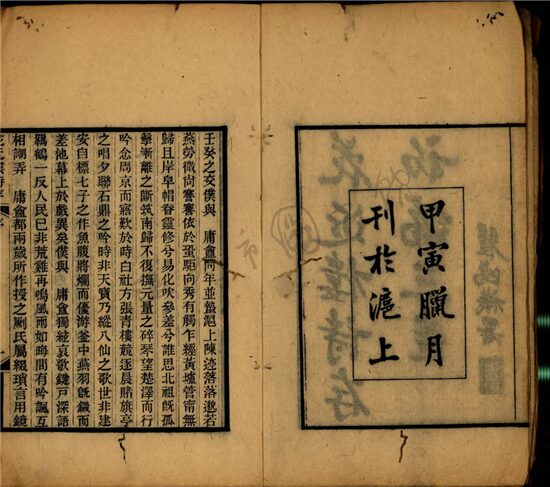 甲寅臘月
刊於滬上
壬癸之交僕與 庸盦同年並蟄滬上陳迹落落邈若
燕勞徵尚謇謇依於蛩駏向秀有觸乍經黃墟管甯無
歸且岸皁帽眷靈修兮易化吹參差兮誰思北祖旣孤
擊漸離之斷筑南歸不復撫元量之碎琴望楚澤而行
吟念周京而寤歎於時白社方張青樓競逐晨賭旗亭
之唱夕聯石鼎之吟時非天寶乃縱八仙之歌世非建
安自標七子之作魚腹將爛而優游釜中燕羽旣鎩而
差池幕上於戲異矣僕與 庸盦獨兢哀歌鍵戶深語
鶴一反人民已非荒雞再鳴風雨如晦間有吟諷互
相弄 庸盦都兩歲所作授之劂氏屬綴瑣言用鏡